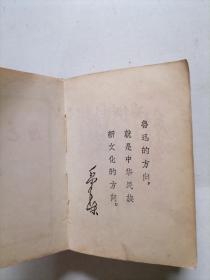 鲁迅的方向，
就是中华民族
新文化的方向。
毛泽东